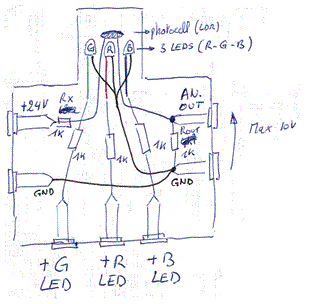 photocell (LDR)
3 LEDS (R-G-B)
G R B
+24V
RX
1K
1K
1K
1K
AN.
OUT
ROUT
1K
Max 10V
GND
GND
+G
LED
+R
LED
+B
LED